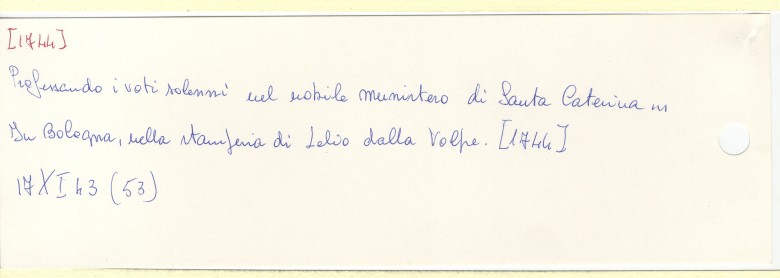 [1744]
Professando i voti solenni nel nobile munistero di Santa Caterina in
In Bologna, nella stamperia di Lelio dalla Volpe. [1744]
17 X I 43 (53)